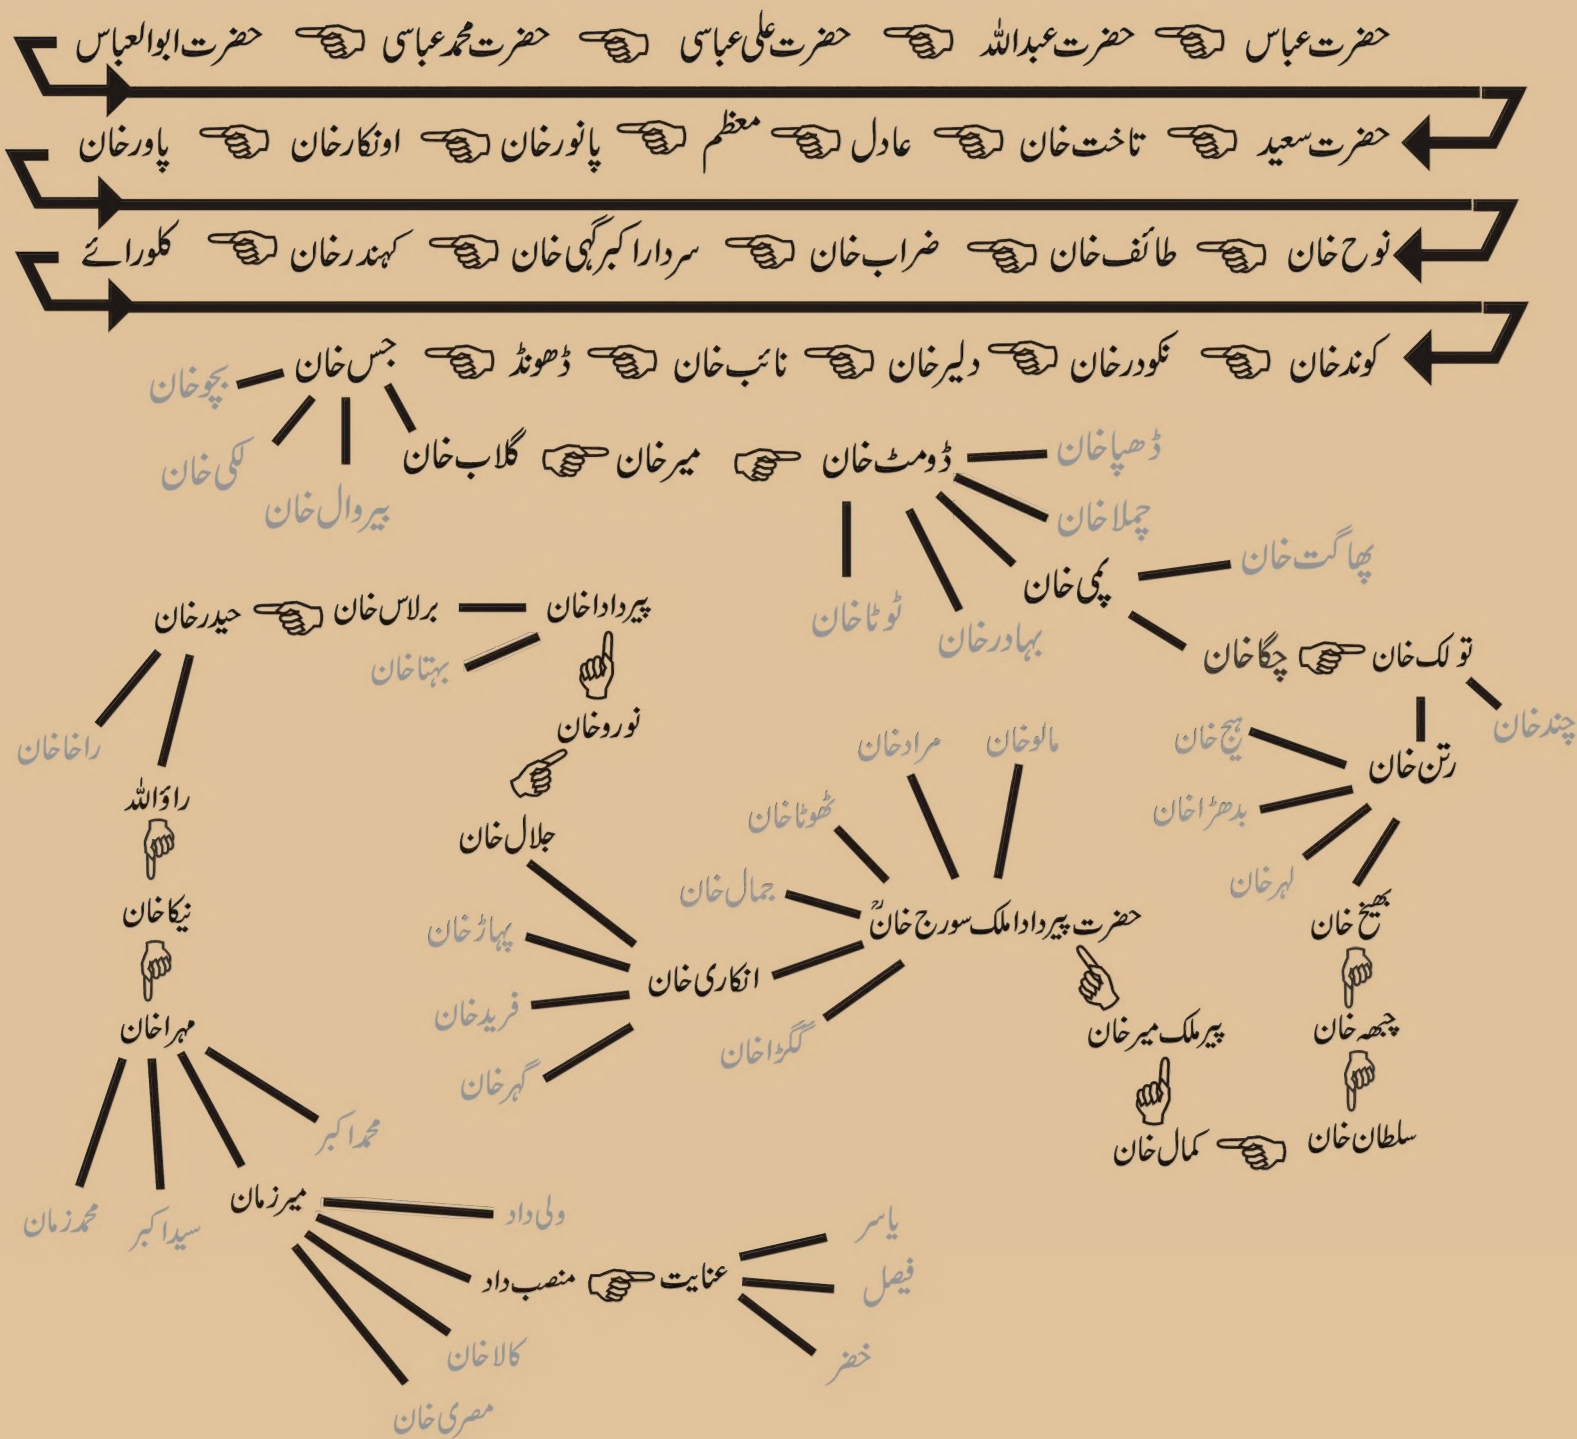 حضرت عباس حضرت عبداللہ حضرت علی عباسی حضرت محمد عباسی حضرت ابوالعباس
حضرت سعید تاخت خان عادل معظم پانور خان اونکار خان پاور خان
نوح خان طائف خان ضراب خان سردار اکبر گہی خان کہندر خان کلورائے
کوند خان نکودر خان دلیر خان نائب خان ڈھونڈ جس خان
بچو خان
لکی خان
بیروال خان
گلاب خان میر خان ڈومٹ خان
ڈھپا خان
چملا خان
پمی خان
بہادر خان
ٹوٹا خان
پھاگت خان
چگا خان تولک خان
چند خان
رتن خان
بدھڑا خان
لہر خان
بھیخ خان
چبھہ خان
سلطان خان
کمال خان
پیر ملک میر خان
حضرت پیر دادا ملک سورج خانؒ
مالو خان
مراد خان
ٹھوٹا خان
جمال خان
انکاری خان
گگڑا خان
پہاڑ خان
فرید خان
گہر خان
جلال خان
نورو خان
پیر دادا خان
بہتا خان
برلاس خان
حیدر خان
راخا خان
راؤاللہ
نیکا خان
مہرا خان
محمد اکبر
میر زمان
سید اکبر
محمد زمان
ولی داد
منصب داد عنایت
کالا خان
مصری خان
یاسر
فیصل
خضر